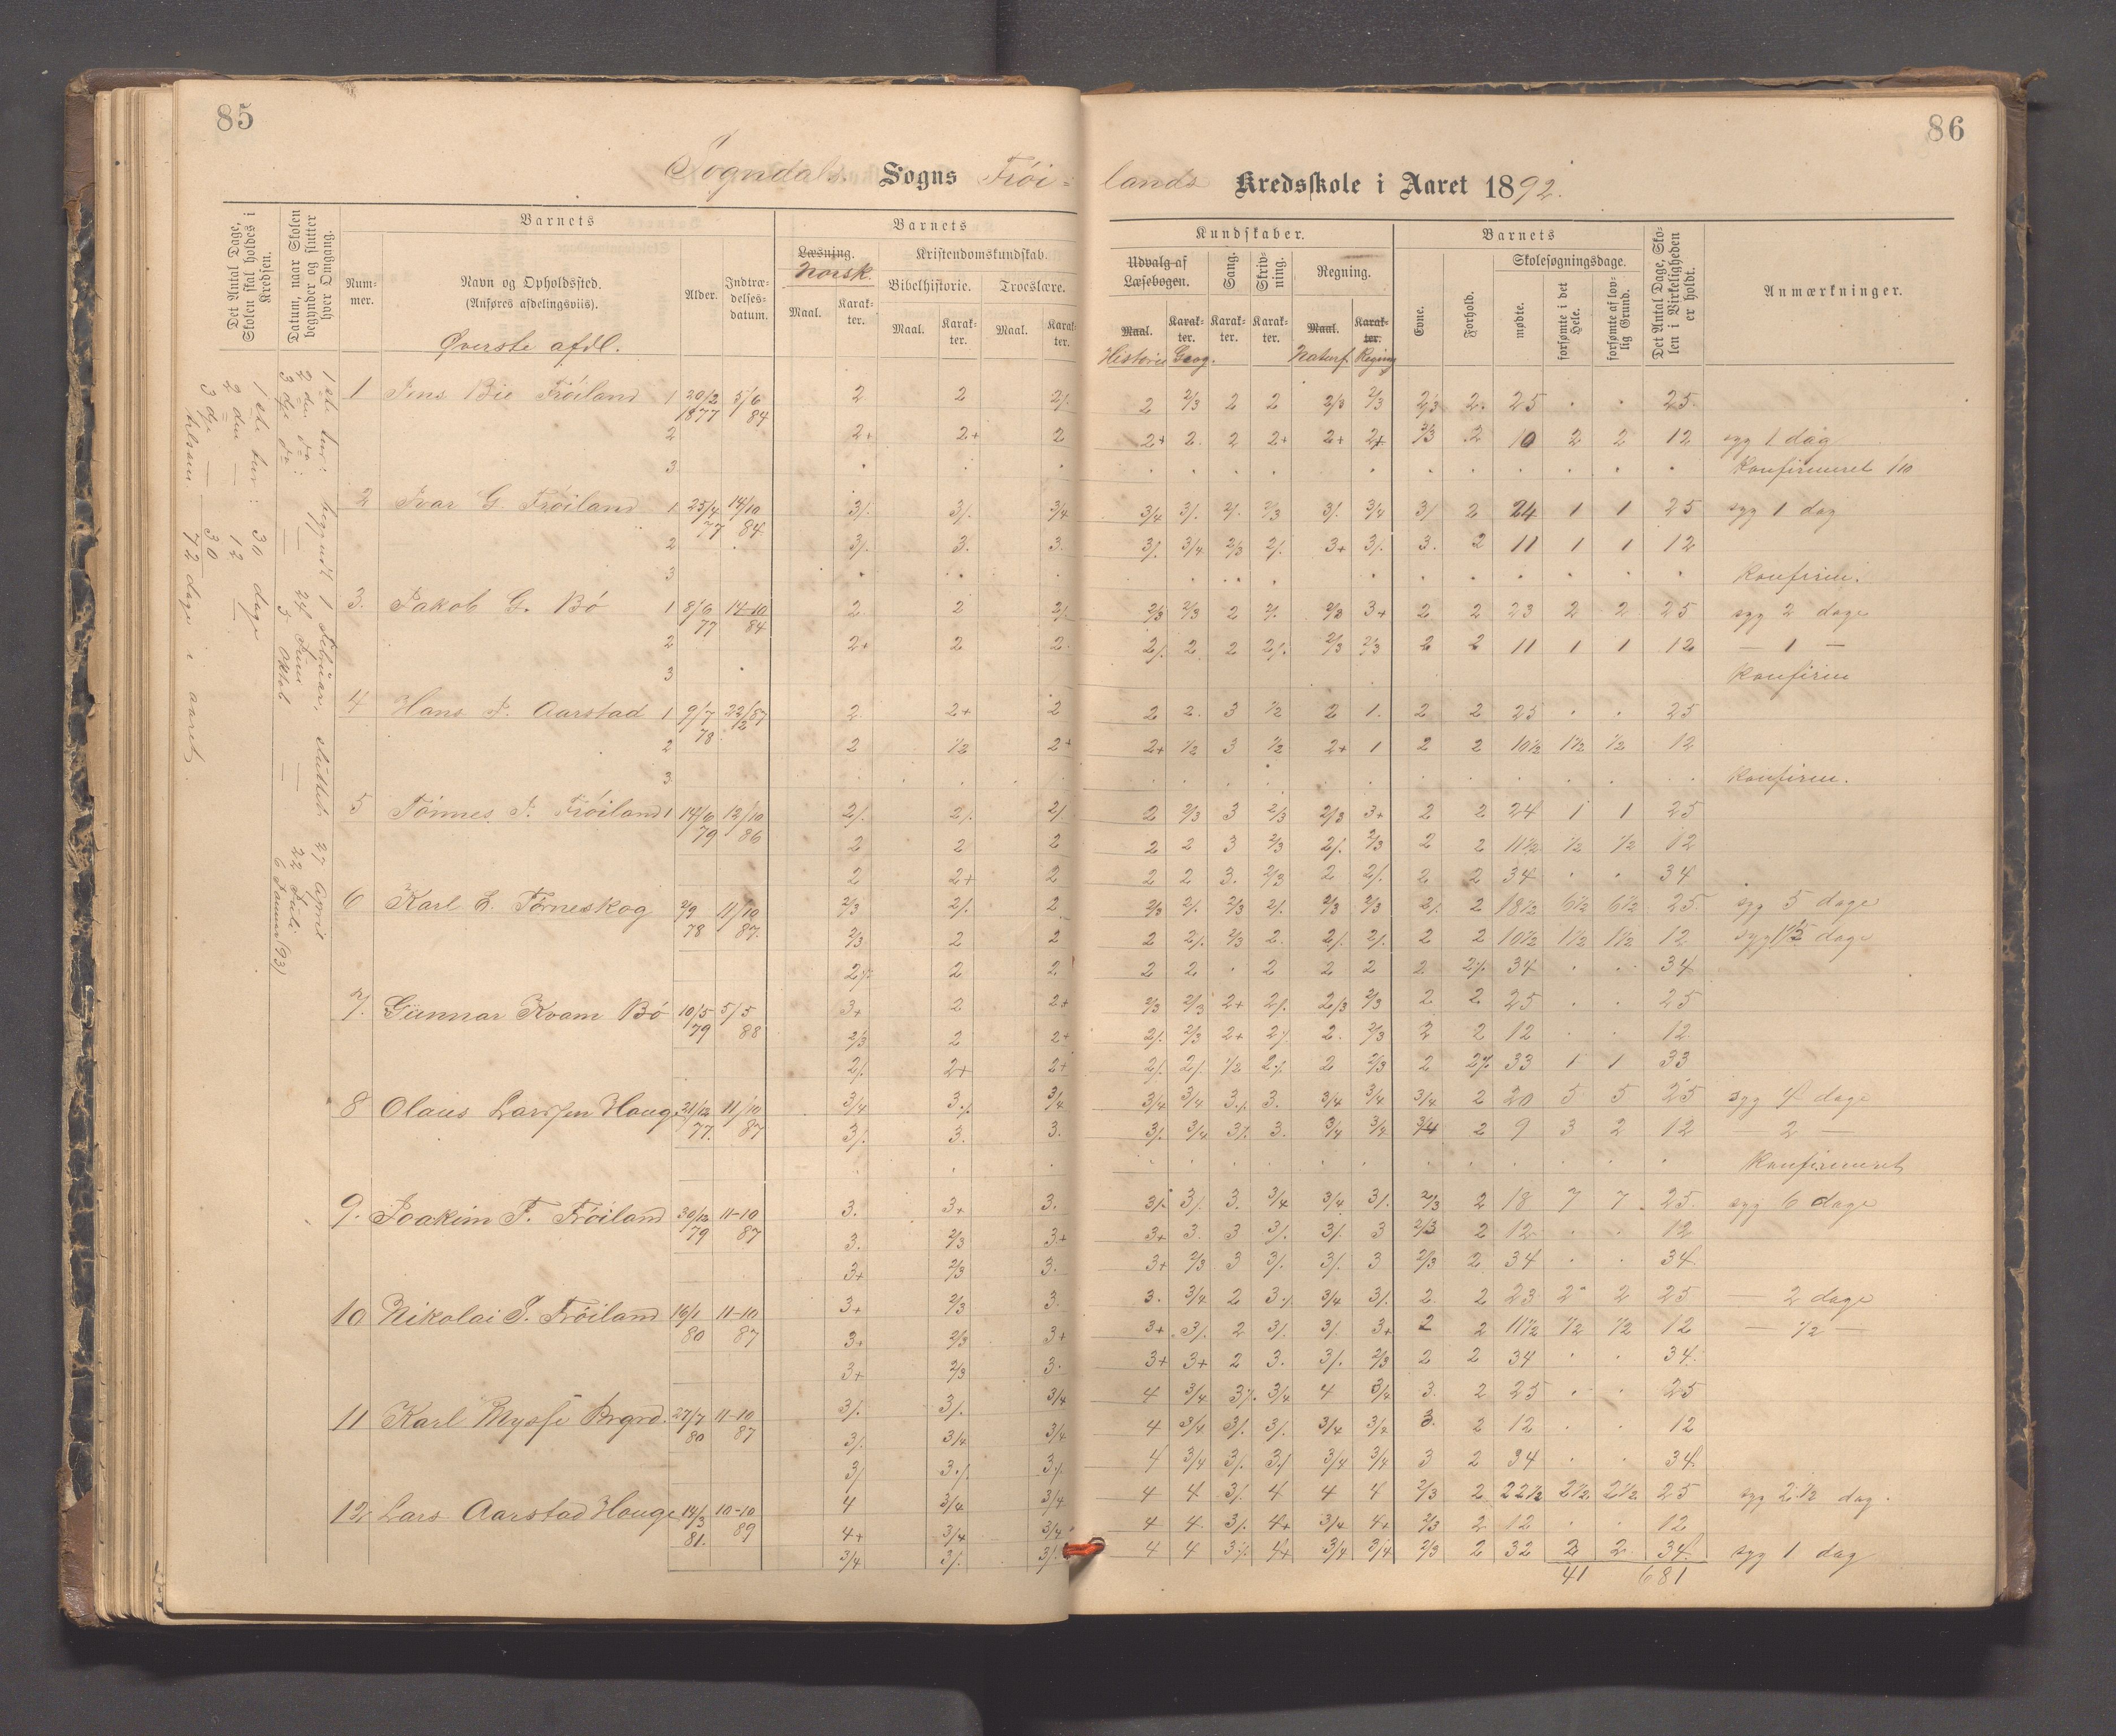 85
86
Sogndals Sogns Frøi=
lands Kredsskole i Aaret 1892.
Det Antal Dage, Skolen skal holdes i Kredsen.
Datum, naar Skolen begynder og slutter hver Omgang.
Barnets
Num-
mer.
Navn og Opholdssted.
(Anføres afdelingsviis).
Alder.
Indtræ-
delses-
datum.
Barnets
Læsning.
Norsk.
Maal.
Karak-
ter.
Kristendomskundskab.
Bibelhistorie.
Troeslære.
Maal.
Karak-
ter.
Maal.
Karak-
ter.
Kundskaber.
Udvalg af
Læsebogen.
Sang.
Skriv-
ning.
Regning.
Maal.
Karak-
ter.
Karak-
ter.
Karak-
ter.
Maal.
Karak-
ter.
Historie Geog.
Naturf. Regning
Barnets
Evne.
Forhold.
Skolesøgningsdage.
mødte.
forsømte i det Hele.
forsømte af lov-
lig Grund.
Det Antal Dage, Sko-
len i Virkeligheden
er holdt.
Anmærkninger.
Øverste afdl.
1ste tur: begyndt 1 Februar, sluttet 27 April
2den do: — 24 Juni — 22 Juli
3dje do — 3 Oktob — 6 Januar (93)
1ste tur: 30 dage
2den — 12 —
3dje — 30
tilsam 72 dage i aaret.
1 Jens Bie Frøiland 1 20/2 1877 5/6 84 2 2 2/. 2 2/3 2 2 2/3 2/3 2/3 2. 25 . . 25.
2 2+ 2+ 2 2+ 2. 2 2+ 2+ 2+ 2/3 2 10 2 2 12 syg 1 dag
3 . . . Konfirmeret 1/10
2 Ivar G. Frøiland 1 25/4 77 14/10 84 3/. 3/. 3/4 3/4 3/. 2/. 2/3 3/. 3/4 3/ 2 24 1 1 25 syg 1 dag
2 3/. 3. 3. 3/. 3/4 2/3 2/. 3+ 3/. 3. 2 11 1 1 12
3 . . . Konfirm.
3. Jakob G. Bø 1 8/6 77 14-10 84 2 2 2/. 2/3 2/3 2 2/. 2/3 3+ 2 2 23 2 2 25 syg 2 dage
2 2+ 2 2. 2/. 2 2 2/. 2/3 2/3 2 2 11 1 1 12 — 1 —
3 Konfirm
4 Hans J. Aarstad 1 9/7 78 22/2 87 2 2+ 2 2 2. 3 1/2 2 1. 2 2 25 . . 25
2 2 1/2 2+ 2+ 1/2 3 1/2 2+ 1 2 2 10 1/2 1 1/2 1/2 12
3 . . . Konfirm.
5 Tønnes J. Frøiland 1 14/6 79 12/10 86 2/. 2/. 2/. 2 2/3 3 2/3 2/3 3+ 2 2 24 1 1 25
2 2 2 2 2 3 2/3 2/. 2/3 2 2 11 1/2 1/2 1/2 12
2 2+ 2 2 2 3. 2/3 2 2/. 2 2 34 . . 34
6 Karl E. Tørneskog 2/9 78 11/10 87. 2/3 2/. 2 2/3 2/. 2/3 2/. 2/3 2/3 2/. 2 18 1/2 6 1/2 6 1/2 25. syg 5 dage
2/3 2 2 2 2/. 2/3 2. 2/. 2/. 2 2 10 1/2 1 1/2 1 1/2 12 syg 1 1/2 dage
2/. 2 2 2 2 . 2 2 2 2 2/. 34 . . 34
7. Gunnar Kvam Bø 10/5 79 5/5 88 3+ 2 2+ 2/3 2/3 2+ 2/. 2/3 2/3 2 2 25 . . 25
2/3 2 2+ 2/. 2/3 2+ 2/. 2. 2/3 2 2 12 . . 12
2/. 2+ 2+ 2/. 2/. 1/2 2/. 2 2/3 2 2/. 33 1 1 33
8 Olaus Larssen Houge 21/12 77. 11/10 87 3/4 3/. 3/4 3/4 3/4 3/. 3. 3/4 3/4 3/4 2 20 5 5 25 syg 4 dage
3/. 3. 3. 3/. 3/4 3/. 3. 3/4 3/4 3/4 2 9 3 2 12 2 —
. . . Konfirmeret
9. Joakim F. Frøiland 30/12 79 11-10 87 3. 3+ 3. 3/. 3/. 3. 3/4 3/4 3/. 2/3 2 18 7 7 25. syg 6 dage
3. 2/3 3+ 3+ 3. 3 3/. 3/. 3 2/3 2 12 . . 12
3+ 2/3 3. 3+ 2/3 3 3/. 3/. 3 2/3 2 34 . . 34
10 Nikolai J. Frøiland 16/1 80 11-10 87 3+ 2/3 3. 3. 3/4 2 3/. 3/4 3/. 2 2 23 2 2 25 — 2 dage
3+ 2/3 3+ 3+ 3/. 2 3/. 3/. 3+ 2 2 11 1/2 1/2 1/2 12 — 1/2 —
3+ 2/3 3. 3+ 3+ 2 3. 3/. 2/3 2 2 34 . . 34
11 Karl Mysse 27/7 80 11-10 87 3/. 3/. 3/4 4 3/4 3/. 3/4 4 3/4 3. 2 25 . . 25
3/. 3/4 3/4 4 3/4 3/. 3/. 3/4 3/4 3. 2 12 . . 12
3/. 3/. 3/. 4 3/4 3/. 3/. 3/4 3/4 3 2 34 . . 34
12 Lars Aarstad Houge 14/3 81. 10-10 89 4 3/4 3/4 4 4 3/. 4 4 4 2/3 2 22 1/2 2 1/2 2 1/2 25 syg 2 1/2 dag.
4+ 3/4 3/4 4 4 3/. 4+ 3/4 4+ 2/3 2 12 . . 12
3/4 3/. 3/. 4 4 3/. 4+ 3/4 3/4 2/3 2 32 2 2 34 syg 1 dag
41 681